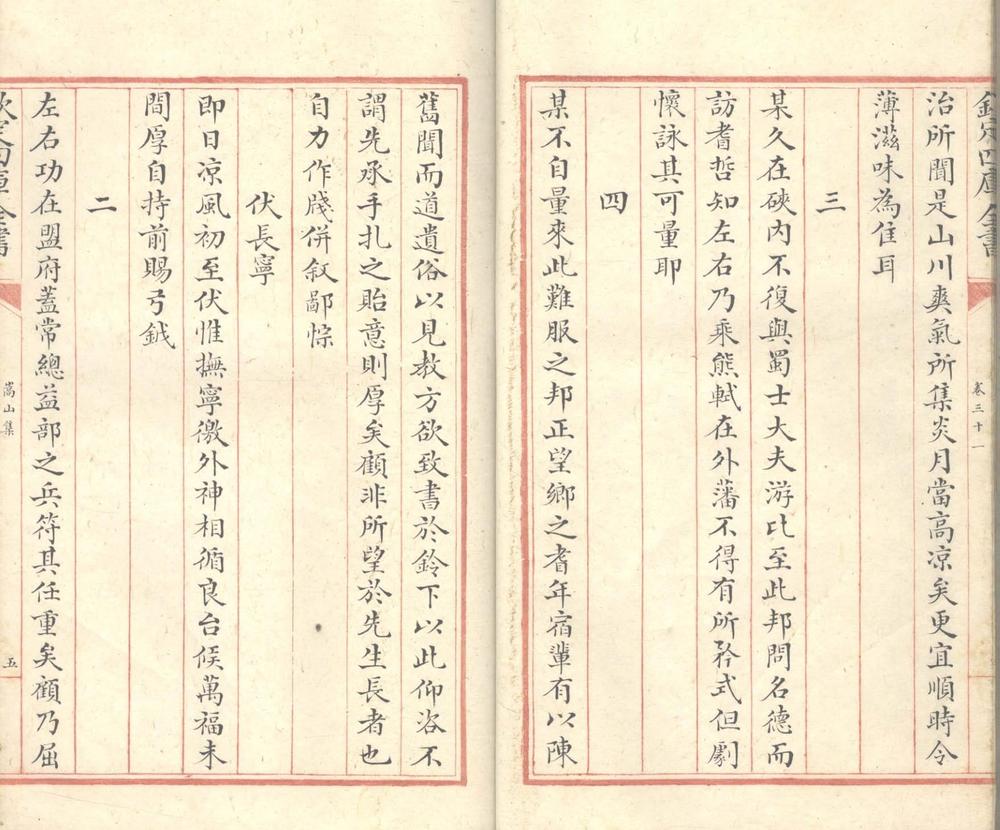 欽定四庫全書
卷三十一
治所聞是山川爽氣所集炎月當高凉矣更宜順時令
薄滋味為佳耳
三
某久在硤内不復與蜀士大夫游比至此邦問名德而
訪耆哲知左右乃乘熊軾在外藩不得有所矜式但劇
懷詠其可量耶
四
某不自量來此難服之邦正望鄉之耆年宿輩有以陳
舊聞而道遺俗以見教方欲致書於鈴下以此仰咨不
謂先承手扎之貽意則厚矣顧非所望於先生長者也
自力作牋併叙鄙悰
伏長寧
即日凉風初至伏惟撫寧徼外神相循良台候萬福未
間厚自持前賜弓鉞
二
左右功在盟府蓋常總益部之兵符其任重矣顧乃屈
欽定四庫全書
嵩山集
五